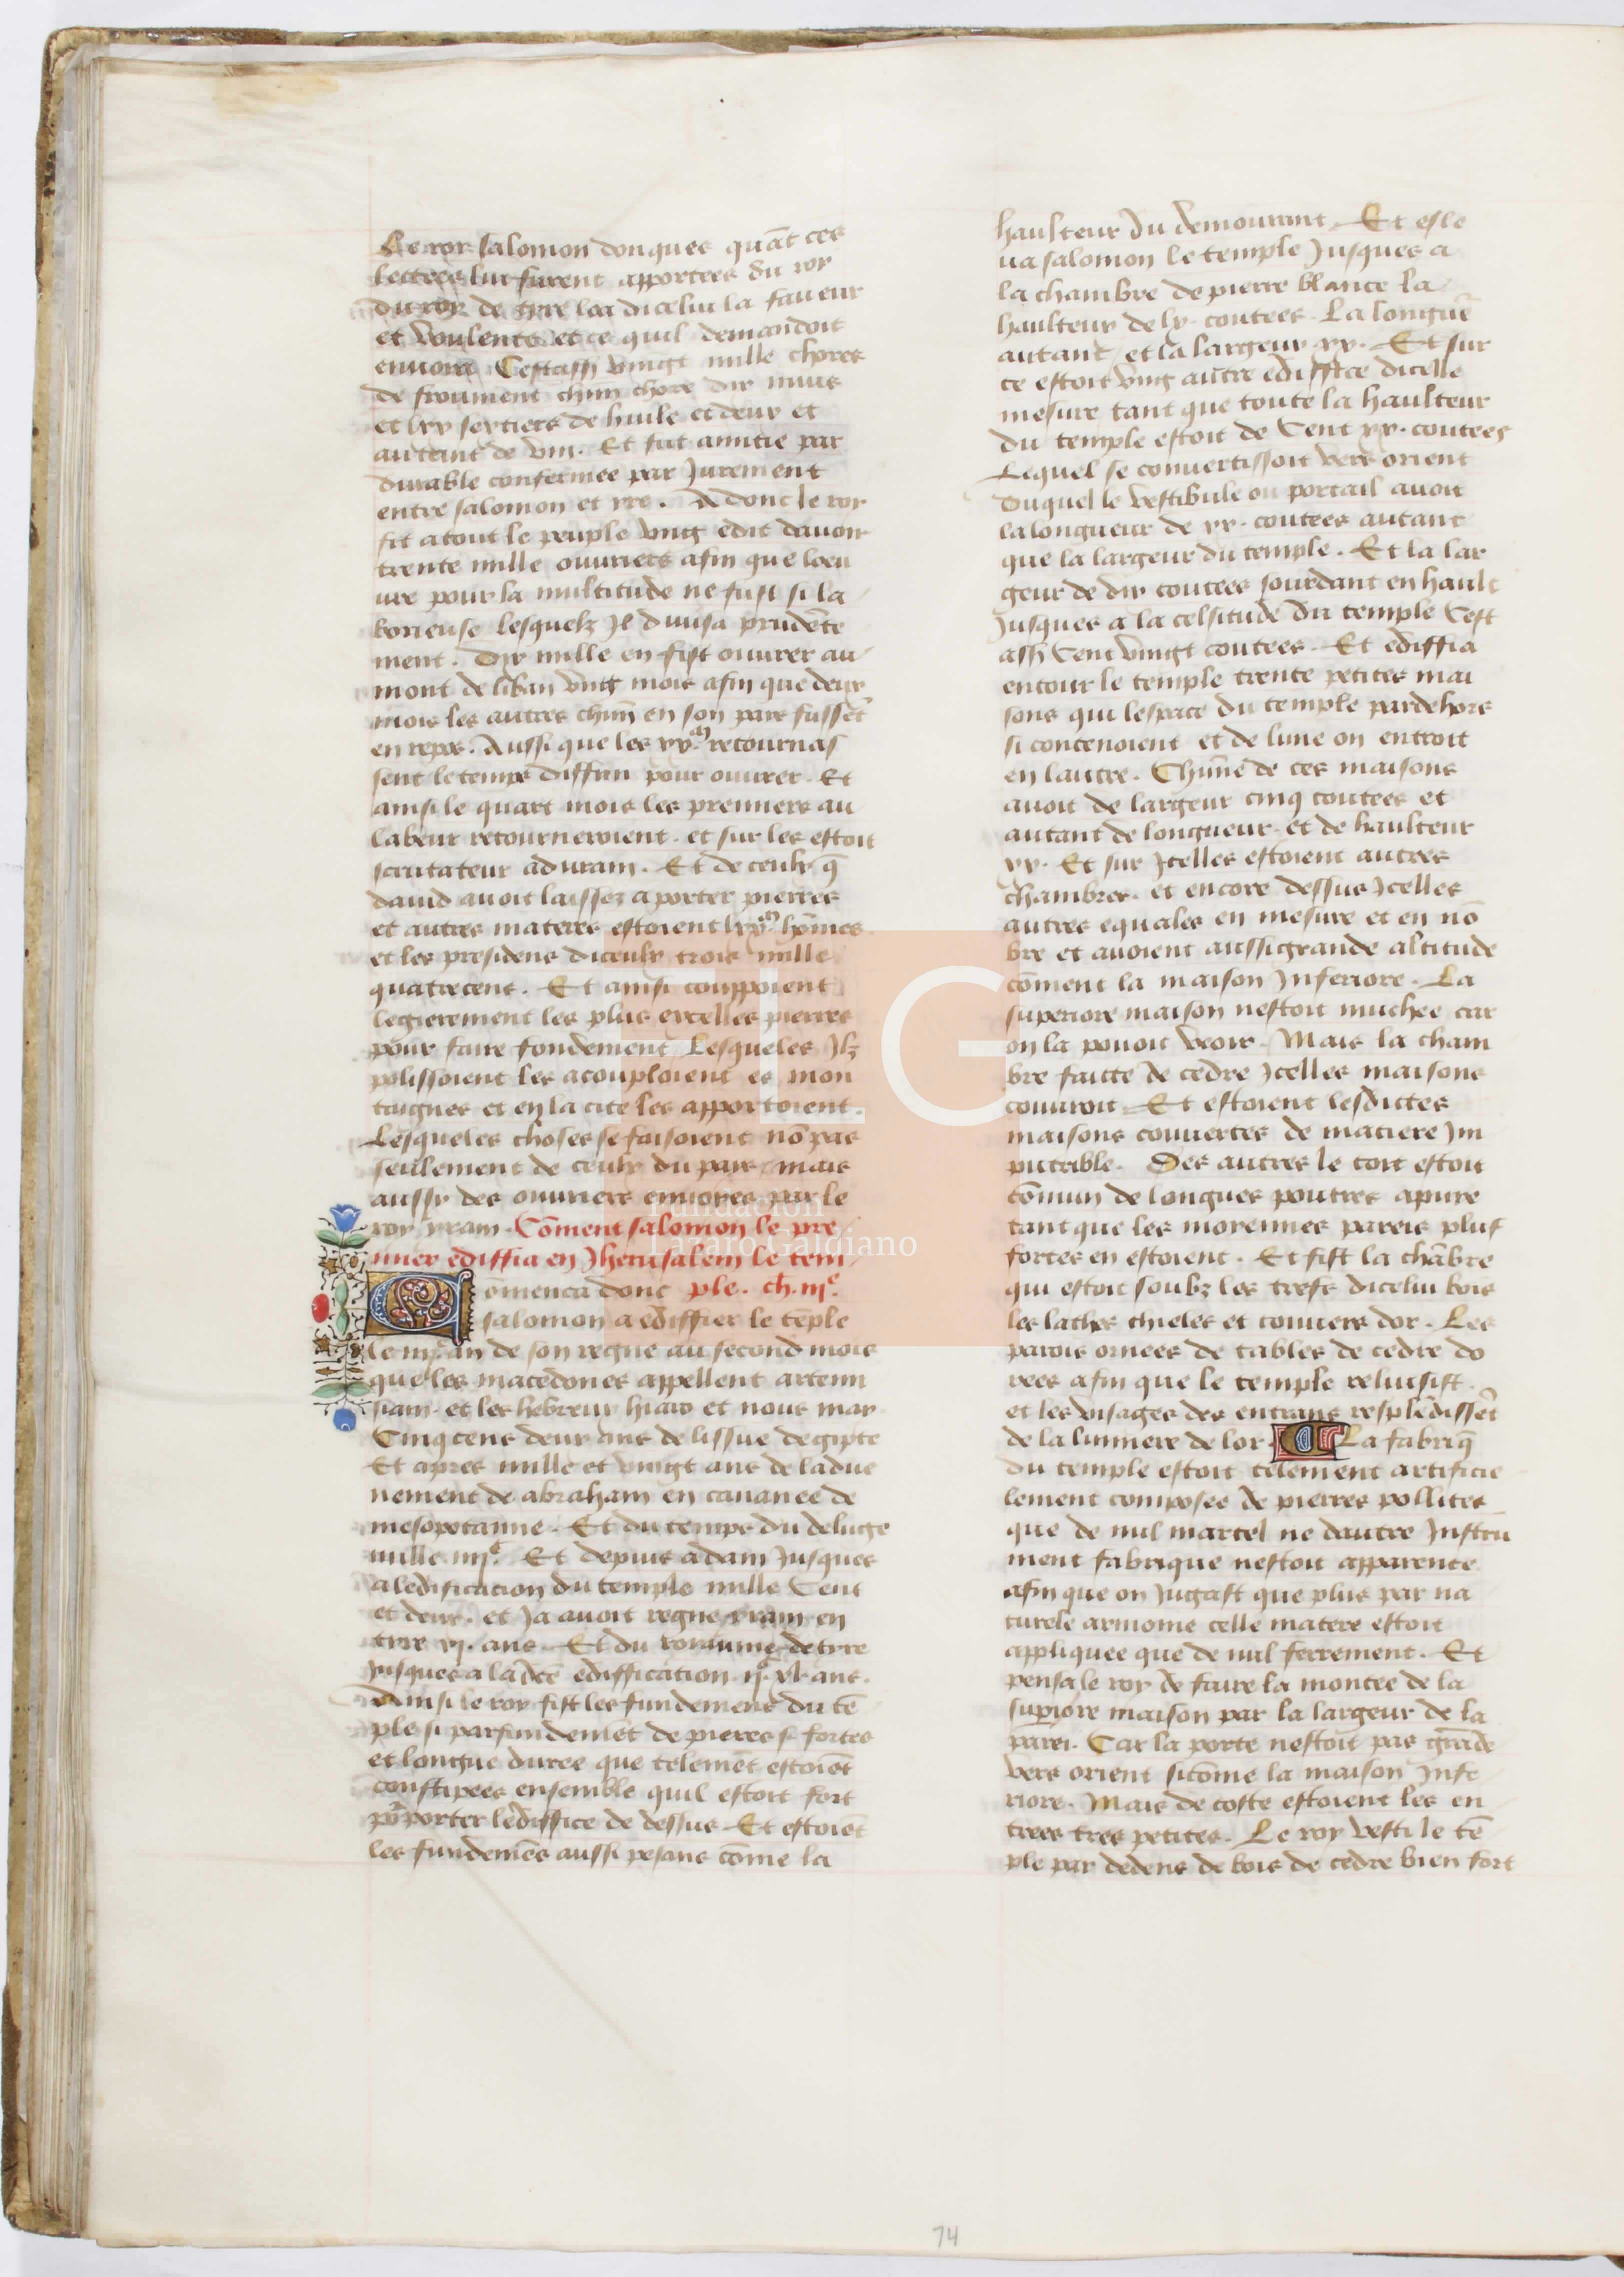 Le roy salomon donques quāt ces
lectres lui furent apportees du roy
du roy de tyre loa dicelui la faueur
et voulente et ce quil demandoit
enuoya Cestass vingt mille chores
de froument chūn chore dix muis
et lxx sextiers de huile et deux et
autent de vin. Et fut amitie par
durable confermee par Jurement
entre salomon et yre. Adonc le roy
fit a tout le peuple vng edit dauoir
trente mille ouuriers afin que loeu
ure pour la multitude ne fust si la
borieuse lesquelz Jl diuisa prudēte
ment. Dix mille en fist ouurer au
mont de liban vng mois afin que deux
mois les autres chūn en son pais fussēt
en repos. Aussi que les xx.m retournas
sent le temps diffini pour ouurer. Et
ainsi le quart mois les premiers au
labeur retourneroient. et sur les estoit
scrutateur aduram. Et de ceulx q̄
dauid auoit laissez a porter pierres
et autres materes estoient lxx.m hōmes.
et les presidens diceulx trois mille
quatrecens. Et ainsi couppoient
legierement les plus excelles pierres
pour faire fondement Lesqueles Jlz
polissoient les acouploient es mon
taignes et en la cite les apportoient.
Lesqueles choses se faisoient nō pas
seulement de ceulx du pais mais
aussy des ouuriers enuoyes par le
roy yram. Cōment salomon le pre
mier ediffia en Jherusalem le tem
Cōmenca donc ple. ch. iij.e
salomon a ediffier le tēple
le iiij.e an de son regne au second mois
que les macedones appellent artemi
siam. et les hebreux hiaro et nous may
Cinq cens deux ans de lissue degipte
Et apres mille et vingt ans de ladue
nement de abraham en cananee de
mesopotanne. Et du temps du deluge
mille iiij.c Et depuis adam Jusques
a ledificacion du temple mille Cent
et deux. et Ja auoit regne yram en
tyre xj. ans. Et du royaume de tyre
Jusques a la dcē ediffication ij.c xl. ans.
Ainsi le roy fist les fundemens du tē
ple si parfundemēt de pieres si fortes
et longue duree que telemēt estoiēt
constipees ensemble quil estoit fort
po᷑ porter lediffice de dessus. Et estoiēt
les fundemēs aussi pesans cōme la
haulteur du demourant. Et esle
ua salomon le temple Jusques a
la chambre de pierre blance la
haulteur de lx. coutees. La longuē
autant et la largeur xx. Et sur
ce estoit vng autre ediffice dicelle
mesure tant que toute la haulteur
du temple estoit de Cent xx. coutees
Lequel se conuertissoit vers orient
Duquel le vestibule ou portail auoit
la longueur de xx. coutees autant
que la largeur du temple. Et la lar
geur de dix coutees sourdant en hault
Jusques a la celsitude du temple Cest
ass Cent vingt coutees. Et ediffia
entour le temple trente petites mai
sons qui lespace du temple pardehors
si contenoient et de lune on entroit
en lautre. Chūne de ces maisons
auoit de largeur cinq coutees et
autant de longueur. et de haulteur
xx. Et sur Jcelles estoient autres
chambres. et encore dessus Jcelles
autres equales en mesure et en nō
bre et auoient aussi grande altitude
cōment la maison Jnferiore. La
superiore maison nestoit muchee car
on la pouoit veoir. Mais la cham
bre faitte de cedre Jcelles maisons
couuroit. Et estoient lesdictes
maisons couuertes de matiere Jm
putrible. Des autres le toit estoit
cōmun de longues poutres apure
tant que les moyennes pareis plus
fortes en estoient. Et fist la chābre
qui estoit soubz les trefs dicelui bois
les laches thieles et couuers dor. Les
parois ornees de tables de cedre do
rees afin que le temple reluisist.
et les visages des entrans resplēdissēt
de la lumiere de lor. La fabriq̄
du temple estoit telement artificie
lement composee de pierres pollites
que de nul martel ne dautre Jnstrū
ment fabrique nestoit apparence
afin que on Jugast que plus par na
turele armonie celle matere estoit
appliquee que de nul ferrement. Et
pensa le roy de faire la montee de la
supiore maison par la largeur de la
parei. Car la porte nestoit pas grāde
vers orient sicōme la maison Jnfe
riore. Mais de coste estoient les en
trees tres petites. Le roy vesti le tē
ple par dedens de bois de cedre bien fort
Fundación
Lázaro Galdiano
LG
74